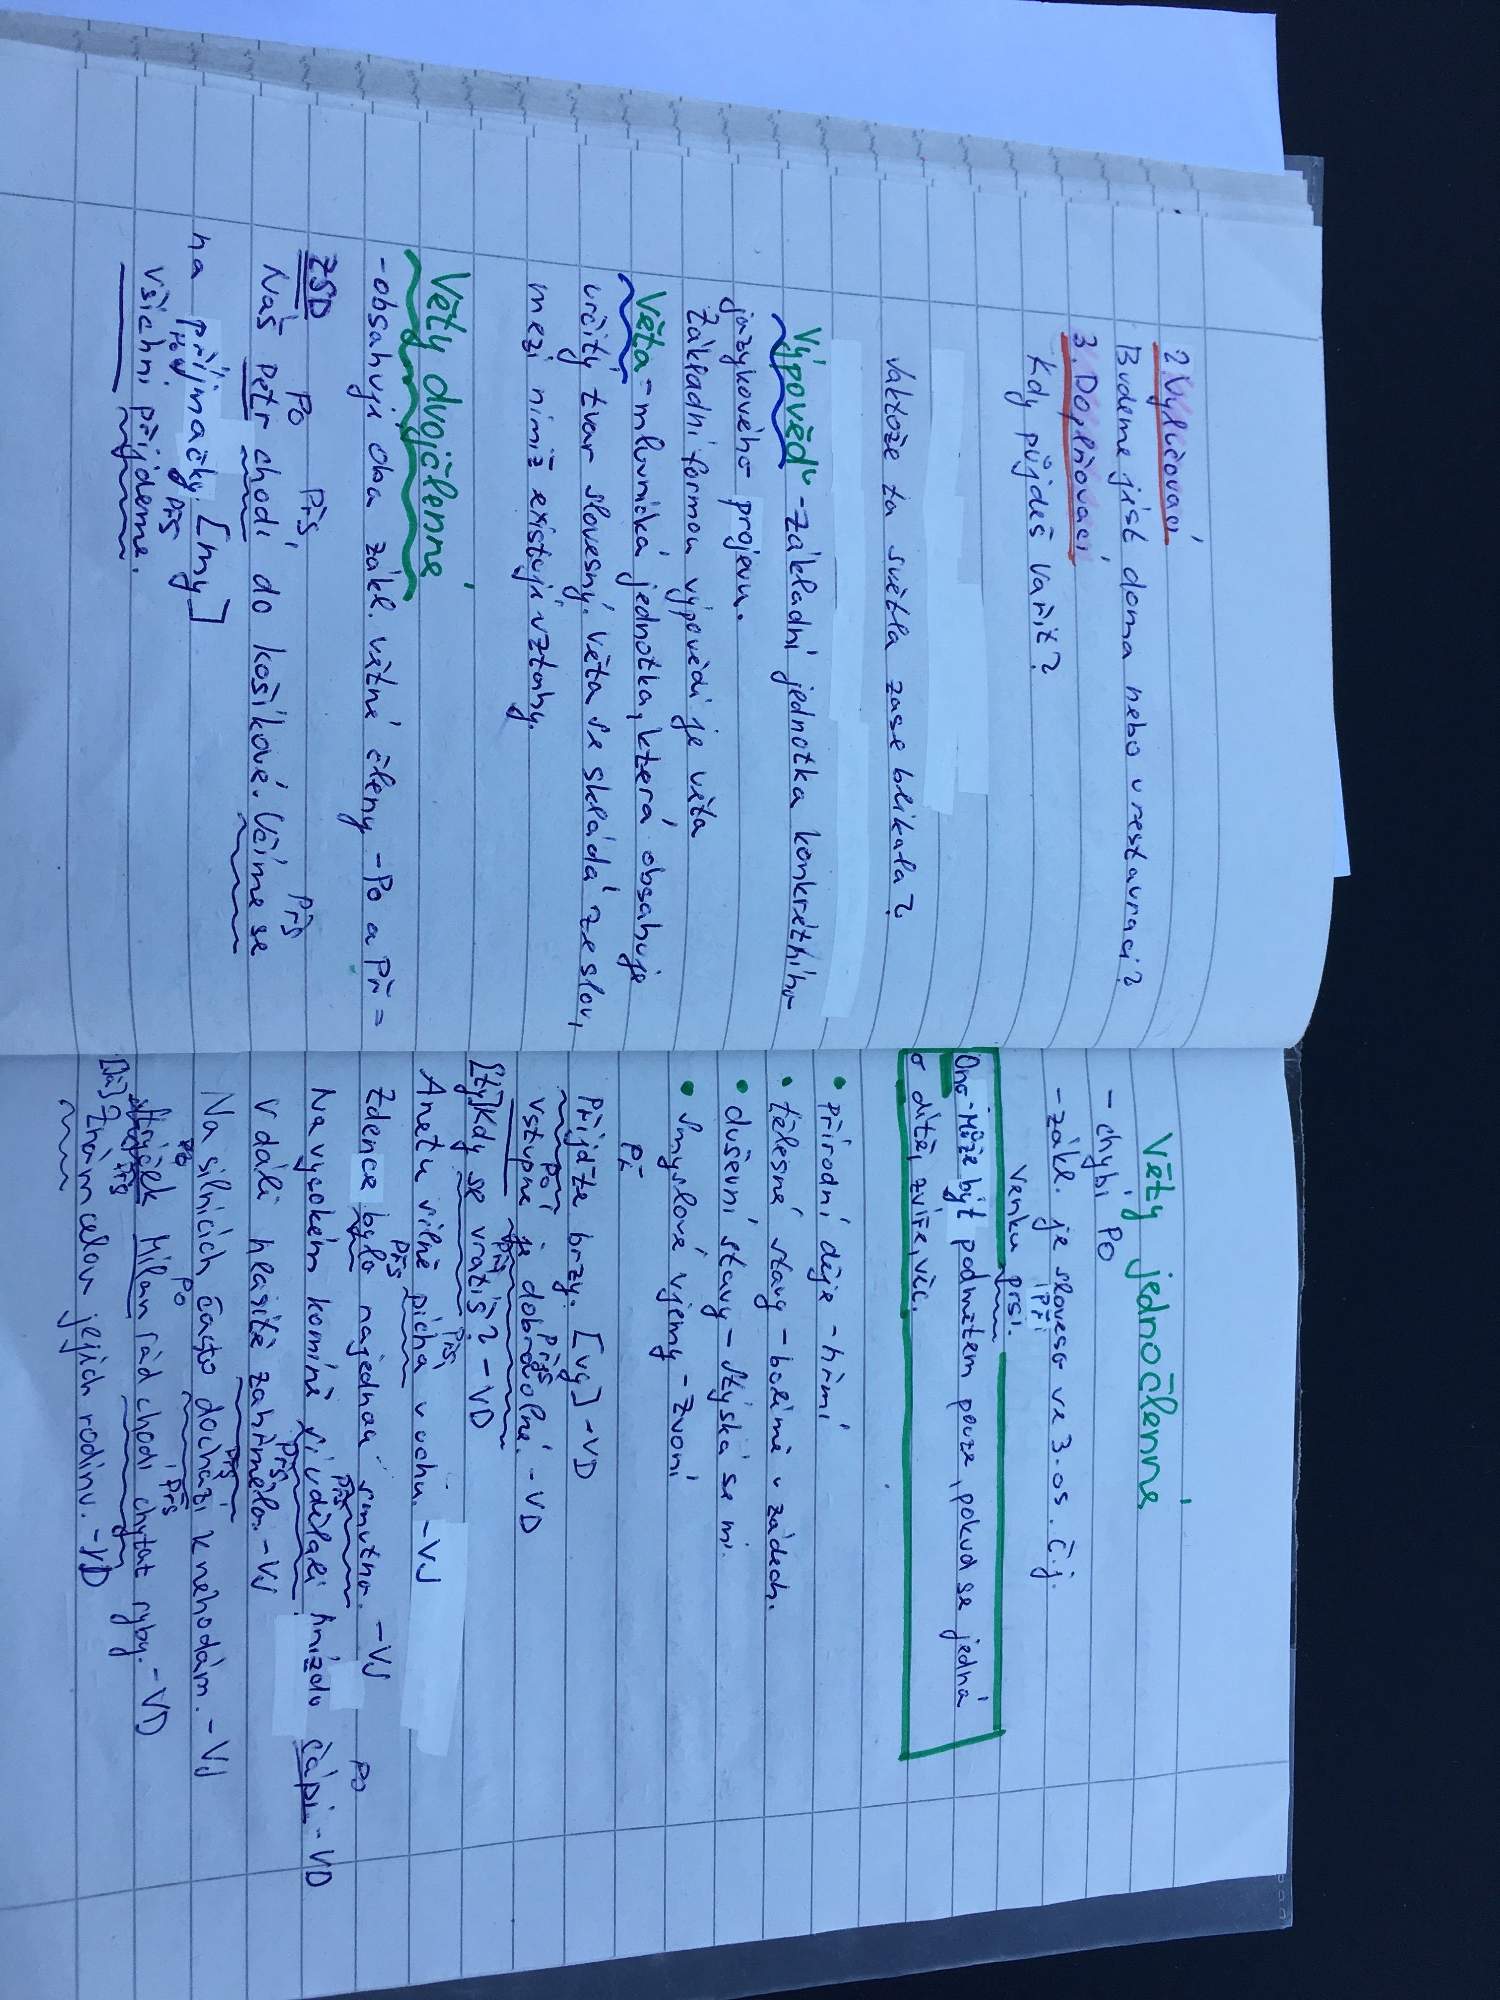 2. Vylučovací
Budeme jíst doma nebo v restauraci?
3. Doplňovací
Kdy půjdeš vařit?
Jaktože ta světla zase blikala?
Výpověď - základní jednotka konkrétního
jazykového projevu.
Základní formou výpovědi je věta
Věta - mluvnická jednotka, která obsahuje
určitý tvar slovesný. Věta se skládá ze slov,
mezi nimiž existují vztahy.
Věty dvojčlenné
- obsahují oba zákl. větné členy - Po a Př =
ZSD
Po Přs Přs
Náš Petr chodí do košíkové. Učíme se
na přijímačky. [my]
Přs
Všichni přijdeme.
Věty jednočlenné
- chybí Po
- zákl. je sloveso ve 3. os. č. j.
Venku prší.
Ono - Může být podmětem pouze, pokud se jedná
o dítě, zvíře, věc.
• přírodní děje - hřmí
• tělesné stavy - bolí mě v zádech.
• duševní stavy - stýská se mi.
• smyslové vjemy - zvoní
Př
Přijďte brzy. [vy] - VD
Po
Vstupné je dobrovolné. - VD
Přs
[ty] Kdy se vrátíš? - VD
Anetu silně píchá v uchu. - VJ
Přs
Zdence bylo najednou smutno. - VJ
Přs Po
Na vysokém komíně si udělali hnízdo čápi. - VD
Přs
V dáli hlasitě zahřmělo. - VJ
Přs
Na silnicích často dochází k nehodám. - VJ
Po Po Přs
Strýček Milan rád chodí chytat ryby. - VD
Přs
[Já] Znám celou jejich rodinu. - VD